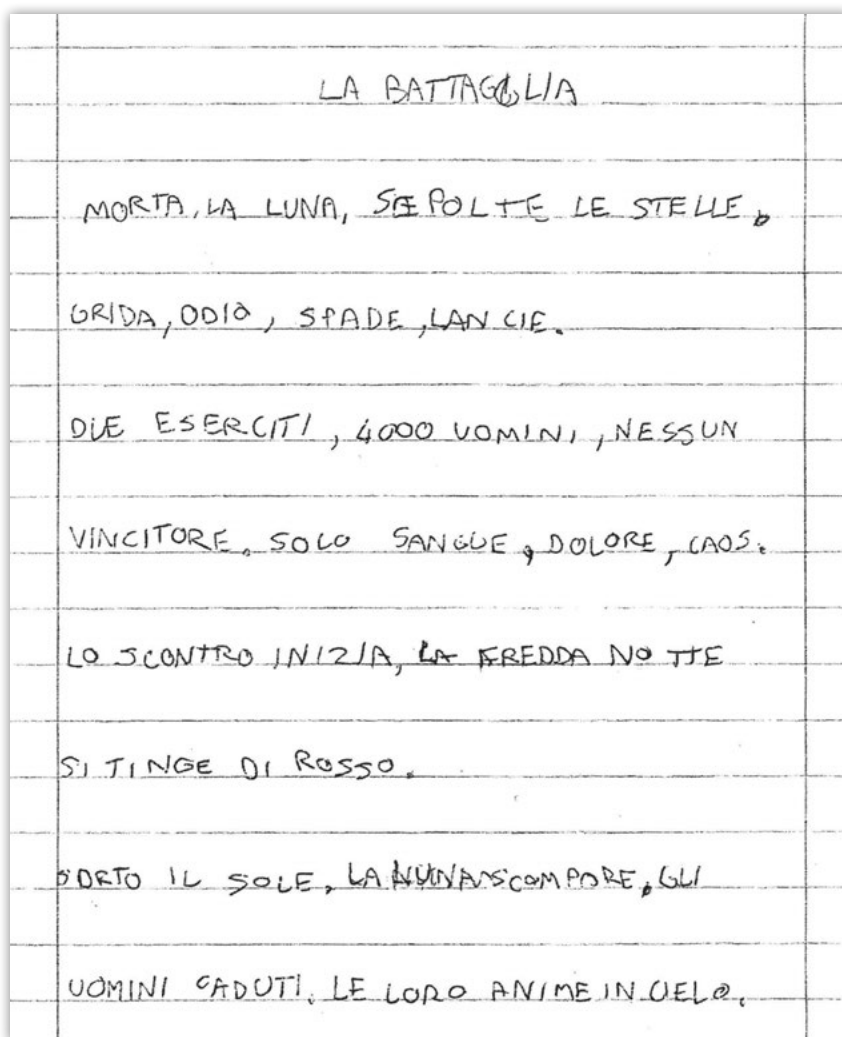 LA BATTAGLIA
MORTA, LA LUNA, SEPOLTE LE STELLE.
GRIDA, ODIO, SPADE, LANCIE.
DUE ESERCITI, 4000 UOMINI, NESSUN
VINCITORE. SOLO SANGUE, DOLORE, CAOS.
LO SCONTRO INIZIA, LA FREDDA NOTTE
SI TINGE DI ROSSO.
SORTO IL SOLE, LA SCOMPORE, GLI
UOMINI CADUTI. LE LORO ANIME IN CIELO.